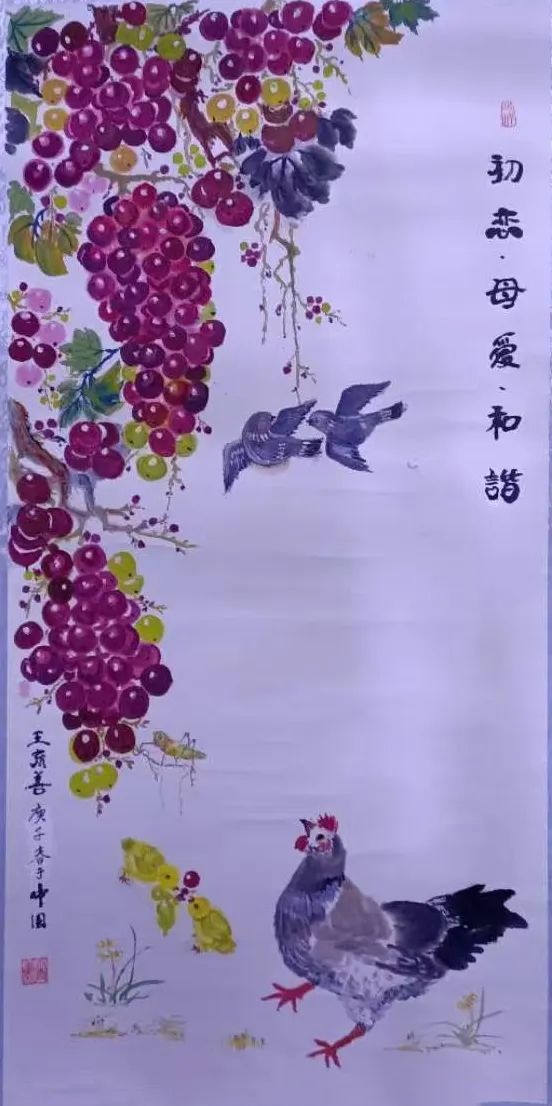 初恋·母爱、和諧
王蔬善庚子春于中国